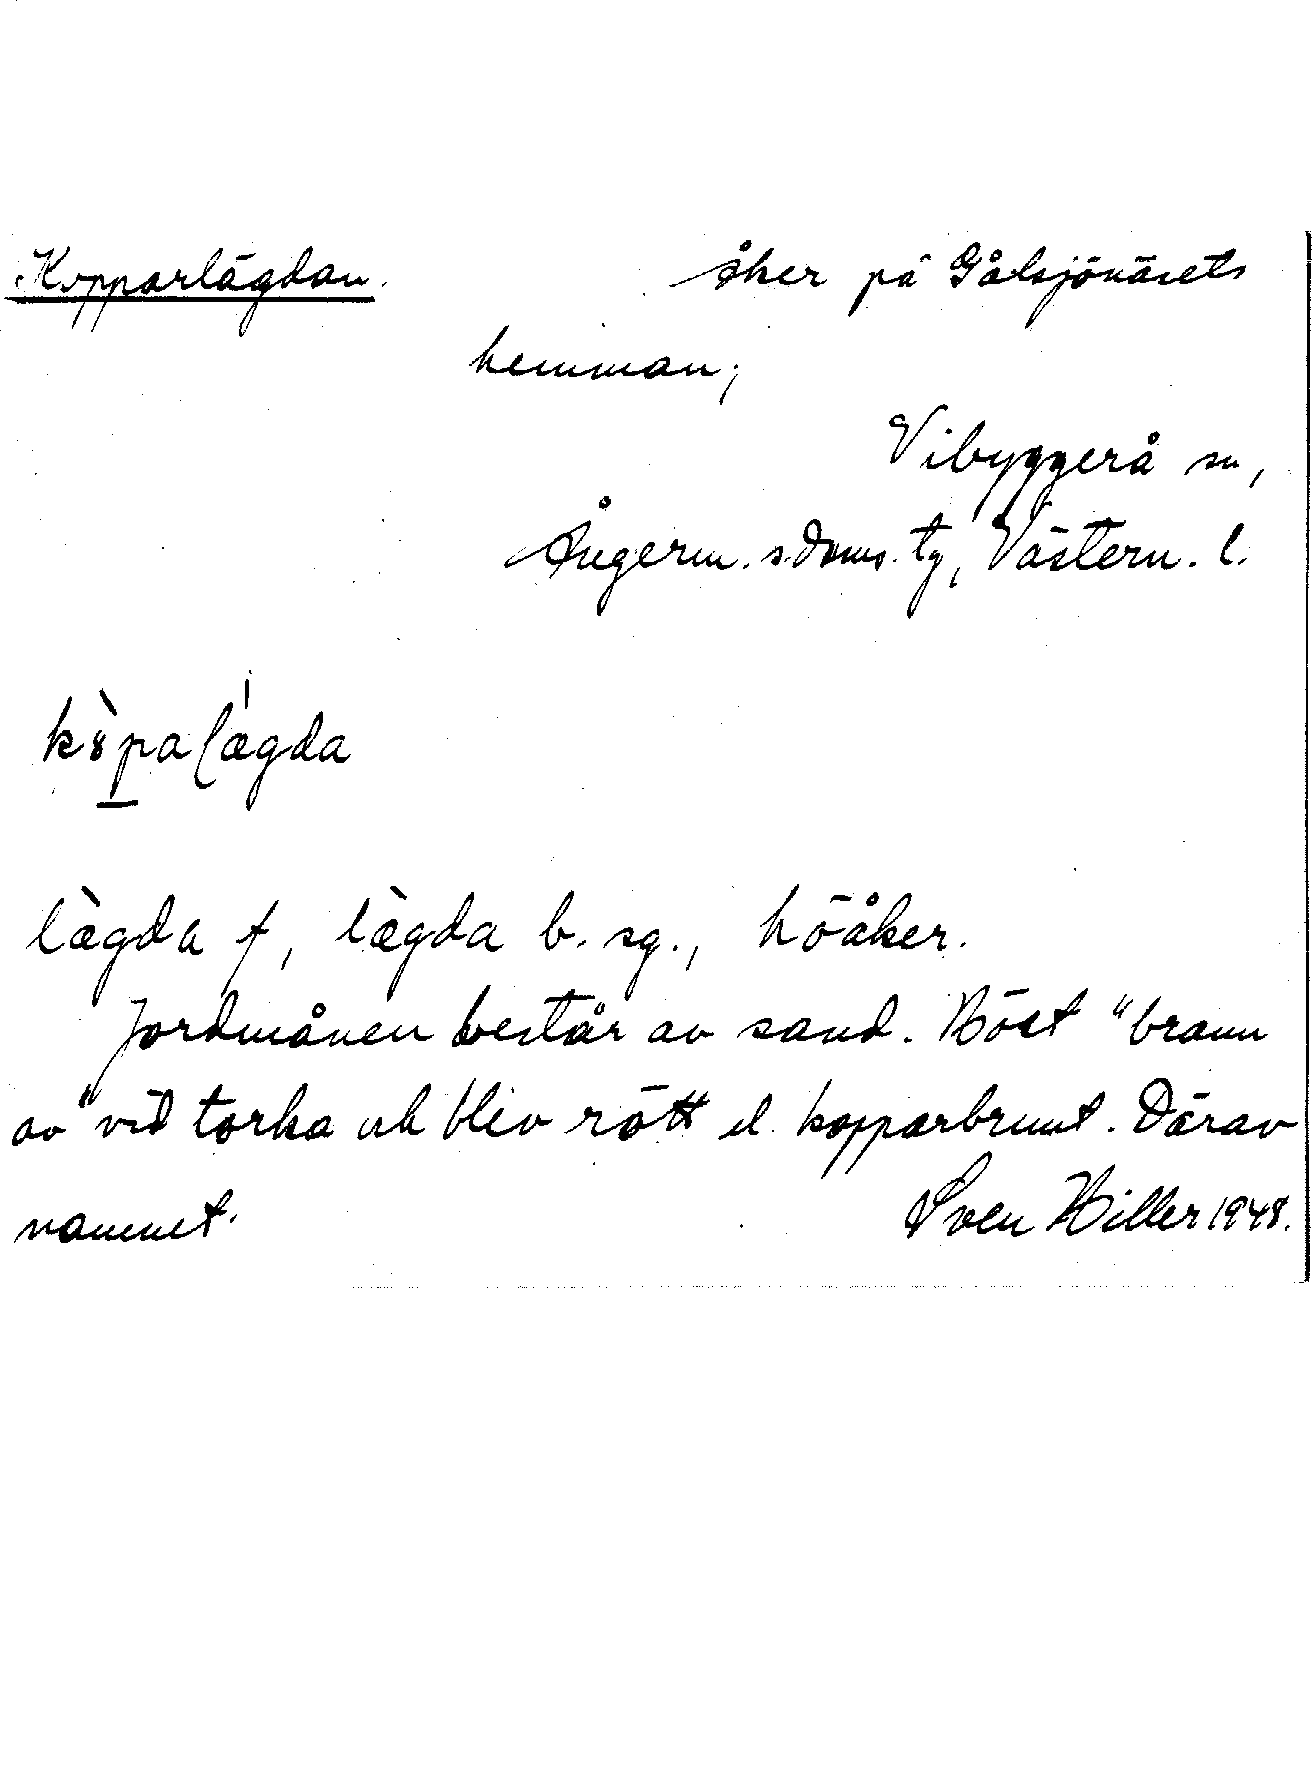 Kopparlägdan. åker på Gålsjönäsets
hemman;
Vibyggerå sn,
Ångerm. s. doms. tg, Västern. l.
lægda
lægda f, lægda b. sg., höåker.
Jordmånen består av sand. Höet "brann
av" vid torka och blev rött el. kopparbrunt. Därav
namnet. Sven Hiller 1948.